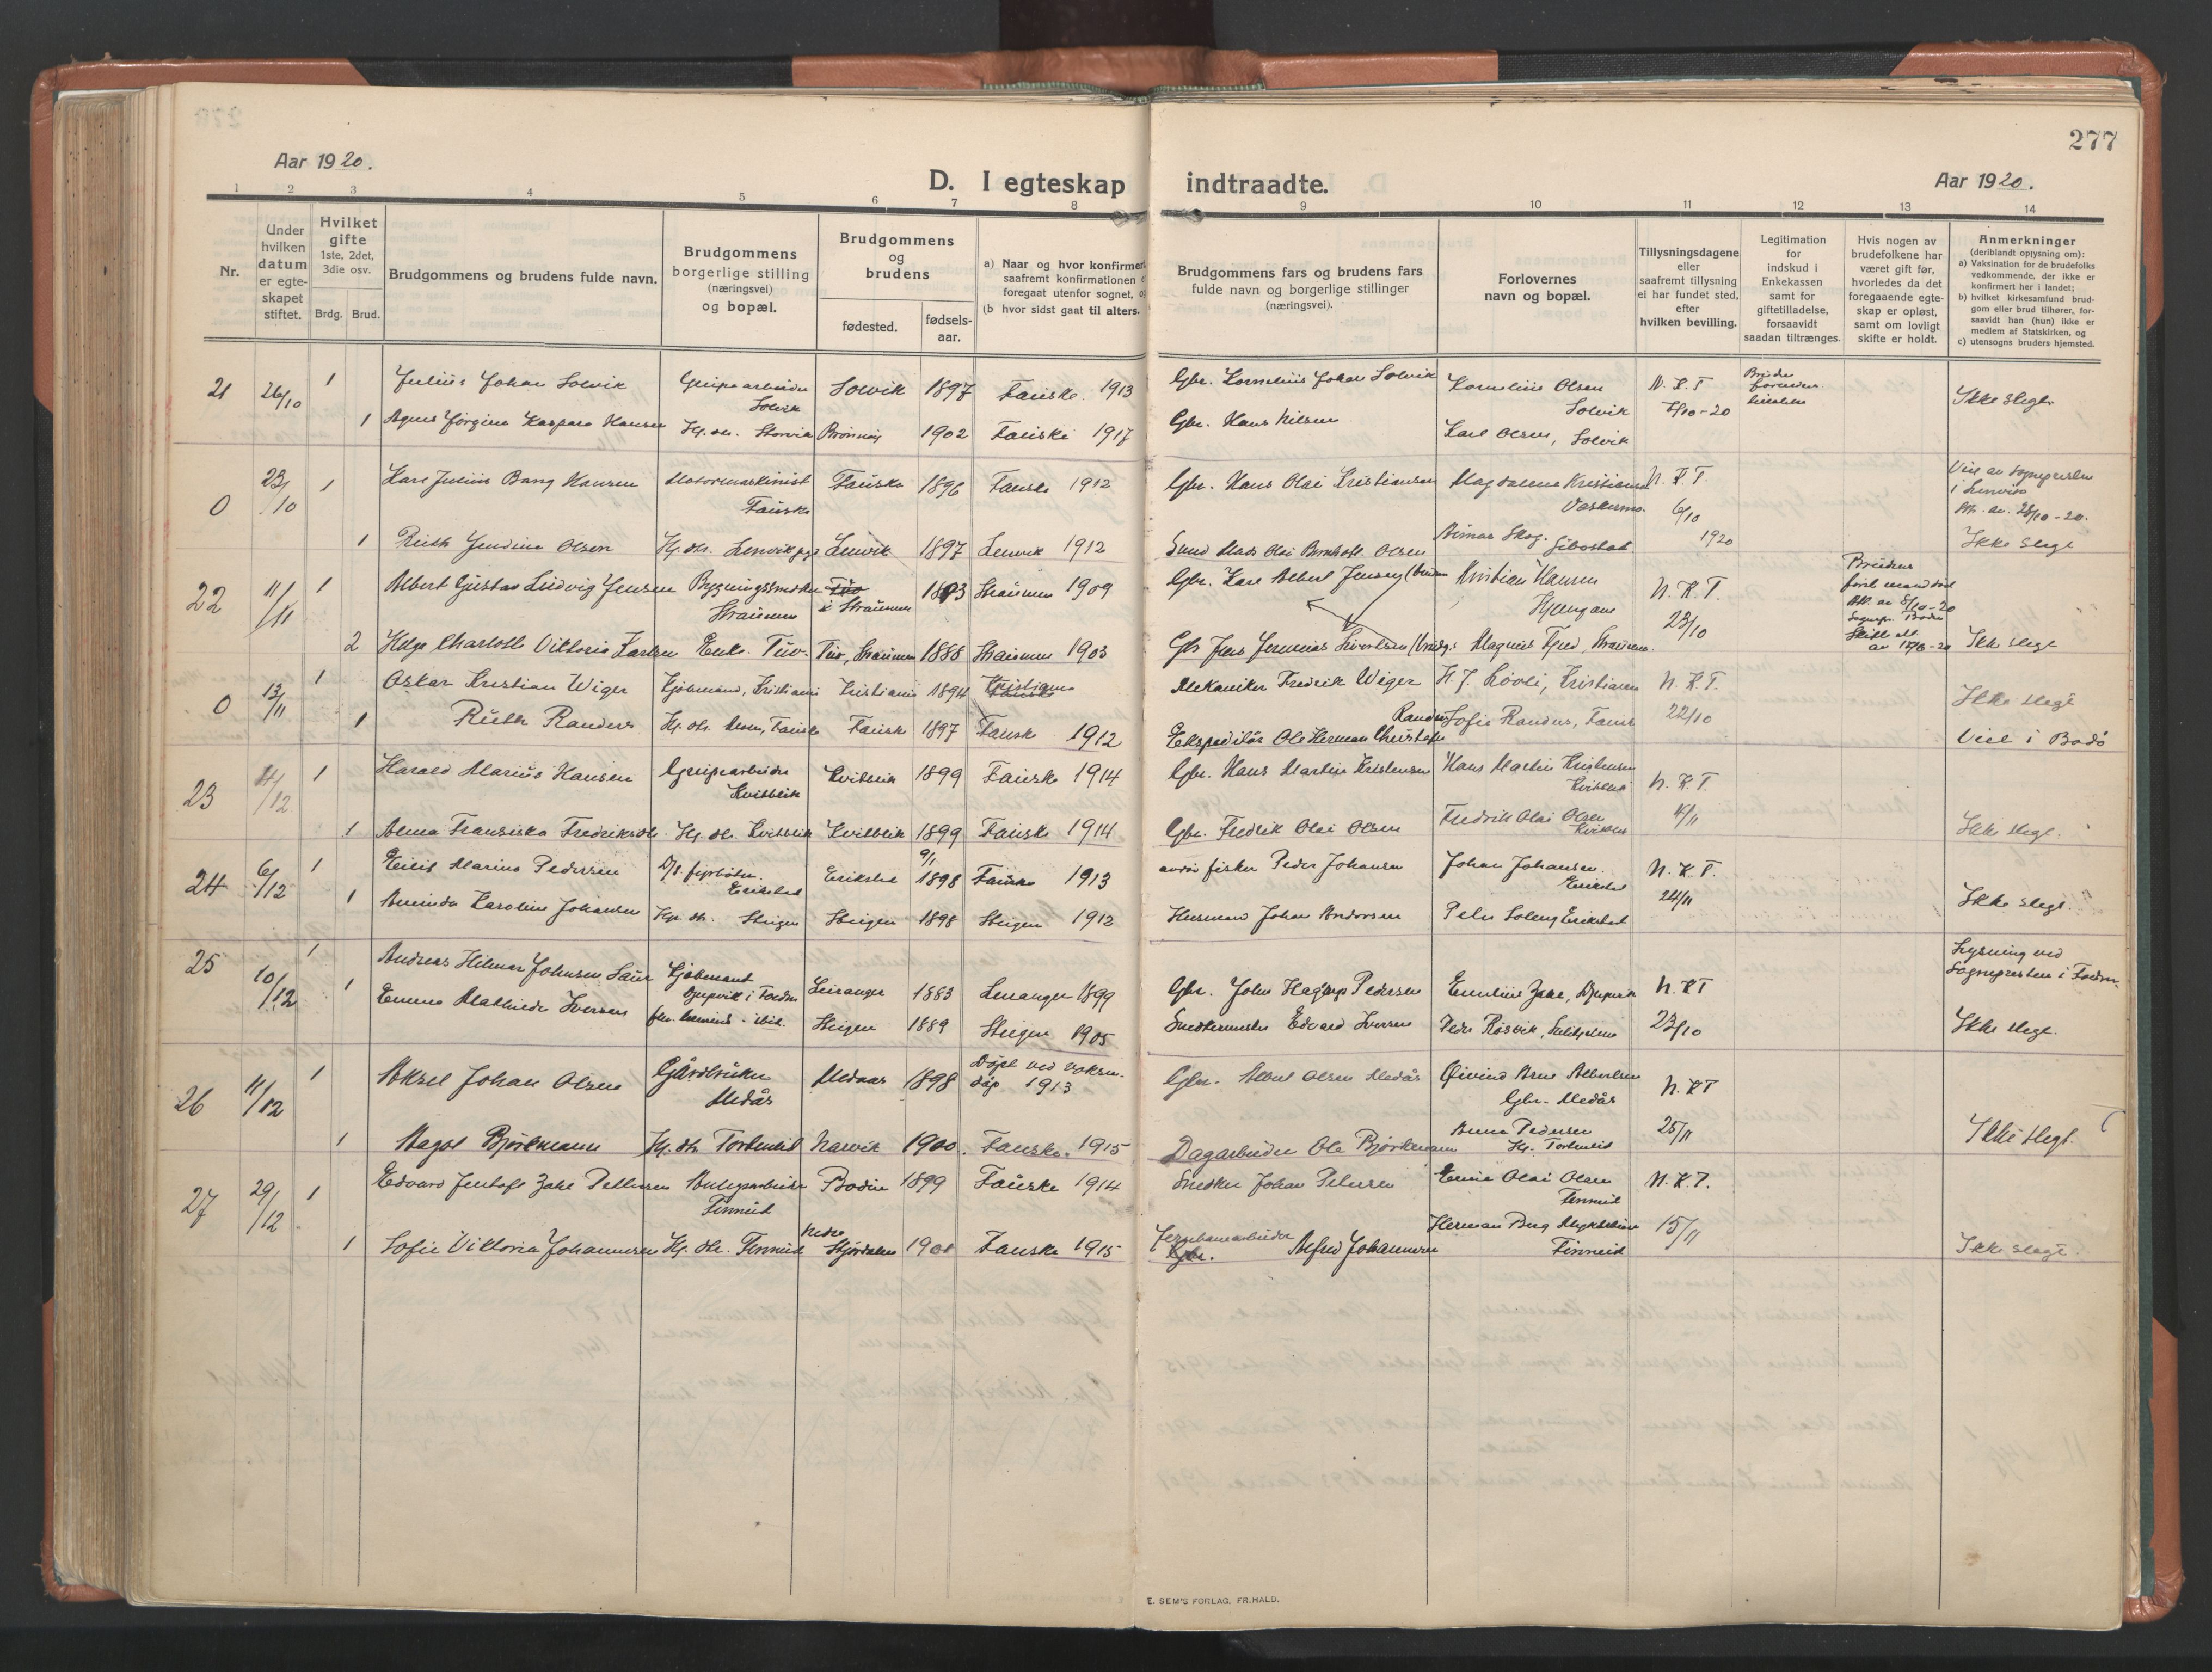 277
Aar 1920.
D. I egteskap indtraadte.
Aar 1920.
1 2 3 4 5 6 7 8 9 10 11 12 13 14
Nr.
Under hvilken datum er egteskapet stiftet.
Hvilket gifte
1ste, 2det, 3die osv.
Brdg. Brud.
Brudgommens og brudens fulde navn.
Brudgommens borgerlige stilling (næringsvei) og bopæl.
Brudgommens og brudens
fødested.
fødsels-aar.
a) Naar og hvor konfirmert
saafremt konfirmationen
foregaat utenfor sognet,
(b hvor sidst gaat til alters.
Brudgommens fars og brudens fars
fulde navn og borgerlige stillinger
(næringsvei).
Forlovernes
navn og bopæl.
Tillysningsdagene
eller
saafremt tillysning
ei har fundet sted,
efter
hvilken bevilling.
Legitimation
for
indskud i
Enkekassen
samt for
giftetilladelse,
forsaavidt
saadan tiltrænges.
Hvis nogen av
brudefolkene har
været gift før,
hvorledes da det
foregaaende egte-
skap er opløst,
samt om lovligt
skifte er holdt.
Anmerkninger
(deriblandt opjysning om):
a) Vaksination for de brudefolks
vedkommende, der ikke er
konfirmert her i landet;
b) hvilket kirkesamfund brud-
gom eller brud tilhører, for-
saavidt han (hun) ikke er
medlem af Statskirken, og
c) utensogns bruders hjemsted.
21 26/10 1 Julius Johan Solvik Grubearbeider Solvik Solvik 1897 Fauske 1913 Gbr. Kornelius Johan Solvik Kornelius Olsen Solvik N.K.T. Ikke slegt.
1 Agnes Jörgine Kaspara Hansen Hj. dtr. Storvik Brönnöy 1902 Fauske 1917 Gbr. Hans Nilsen Karl Olsen, Solvik
0 23/10 1 Karl Julius Bang Hansen Motormaskinist Fauske Fauske 1896 Fauske 1912 Gbr. Hans Olai Kristiansen Magdalena Kristiansen N.K.T. 6/10 1920 Viet av sognepresten i Lenvik
1 Ruth Jendine Olsen Hj. dtr. Lenvik Lenvik 1897 Lenvik 1912 Mads Olai Olsen Skog, Gibostad Ikke slegt
22 11/11 1 Albert Gustav Ludvig Jensen Bygningssnedker Straumen Tuv i Straumen 1883 Straumen 1909 Gbr. Karl Albert Jensen Kristian Hansen N.K.T. 23/10 Brudens förste mand död
2 Helga Charlotte Viktoria Karlsen Enke. Tuv. Tuv, Straumen 1888 Straumen 1903 Gbr Jens Jeremias Magnus Straumen. Ikke slegt
0 13/11 1 Oskar Kristian Wiger Kjöbmand, Kristiania Kristiania 1894 Kristiania Mekaniker Fredrik Wiger H. J. Lövli, Kristiania N.K.T. 22/10 Ikke slegt
1 Ruth Randers Hj. dtr. Fauske Fauske 1897 Fauske 1912 Ekspeditör Ole Herman Christofer Randers Sofie Randers, Fauske Viet i Bodö
23 1/12 1 Harald Marius Hansen Grubearbeider Kvitblik Kvitblik 1899 Fauske 1914 Gbr. Hans Martin Kristensen Hans Martin Kristensen Kvitblik N.K.T.
1 Alma Fransiska Fredriksdtr. Hj. dtr. Kvitblik Kvitblik 1899 Fauske 1914 Gbr. Fredrik Olai Olsen Fredrik Olai Olsen Kvitblik Ikke slegt.
24 6/12 1 Eilif Marino Pedersen D/s. fyrböter. Erikstad Erikstad 9/1 1898 Fauske 1913 fisker Peder Johansen Johan Johansen. Erikstad N.K.T. 24/11
1 Karoline Johansen Hj. dtr. Steigen Steigen 1898 Steigen 1912 Husmand Johan Andorsen Peder Soleng Erikstad Ikke slegt.
25 10/12 1 Andreas Hilmar Johnsen Kjöbmand Djupvik i Folden Leiranger 1883 Leiranger 1899 Gbr. John Hagerup Pedersen Emelius Zakr., Djupvik N.K.T. 23/10 Lysning ved Sognepresten i Folden.
1 Emma Mathilde Iversen Steigen 1889 Steigen 1905 Snedkermester Edvard Iversen Peder Rösvik, Sulitjelma Ikke slegt.
26 11/12 1 Aksel Johan Olsen Gårdbruker Medås Medaas 1898 Döpt ved voksendåp 1913 Gbr. Albert Olsen Medås Öivind Arne Albertsen Gbr. Medås N.K.T. 25/11
1 Magda Björkmann Hj. dtr. Torkelseid Narvik 1900. Fauske. 1915 Dagarbeider Ole Björkmann Anna Pedersen Ikke slegt.
27 29/12 1 Edvard Jentoft Zakr. Pettersen Anlegsarbeider Finneid Bodin 1899 Fauske 1914 Snedker Johan Petersen Olai Olsen Finneid N.K.T. 15/11
1 Sofie Viktoria Johannesen Hj. dtr. Finneid Nedre Stjördalen 1900 Fauske 1915 Jernbanearbeider Alfred Johannesen Herman Berg Finneid Ikke slegt.
E. SEM'S FORLAG. FR.HALD.